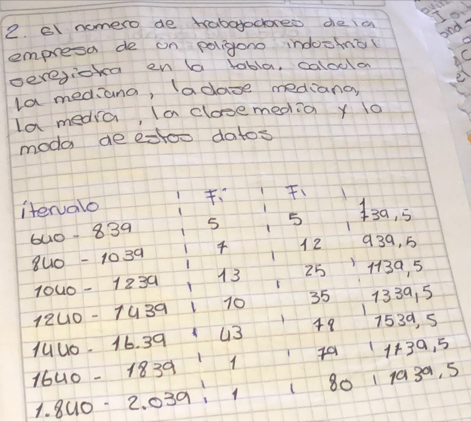 2. el nomero de trabajadores de la
empresa de un poligono industrial
se registra en la tabla. calcula
la mediana, la clase mediana,
la media, la clase media y la
moda de estos datos
itervalo | Fi | Fi |
640 - 839 | 5 | 5 739,5
840 - 1039 | 7 | 12 939,5
1040 - 1239 | 13 | 25 | 1139,5
1240 - 1439 | 10 | 35 | 1339,5
1440 - 16.39 | 43 | 78 | 1539,5
1640 - 1839 | 1 | 79 | 1739,5
1.840 - 2.039 | 1 | 80 | 1939,5